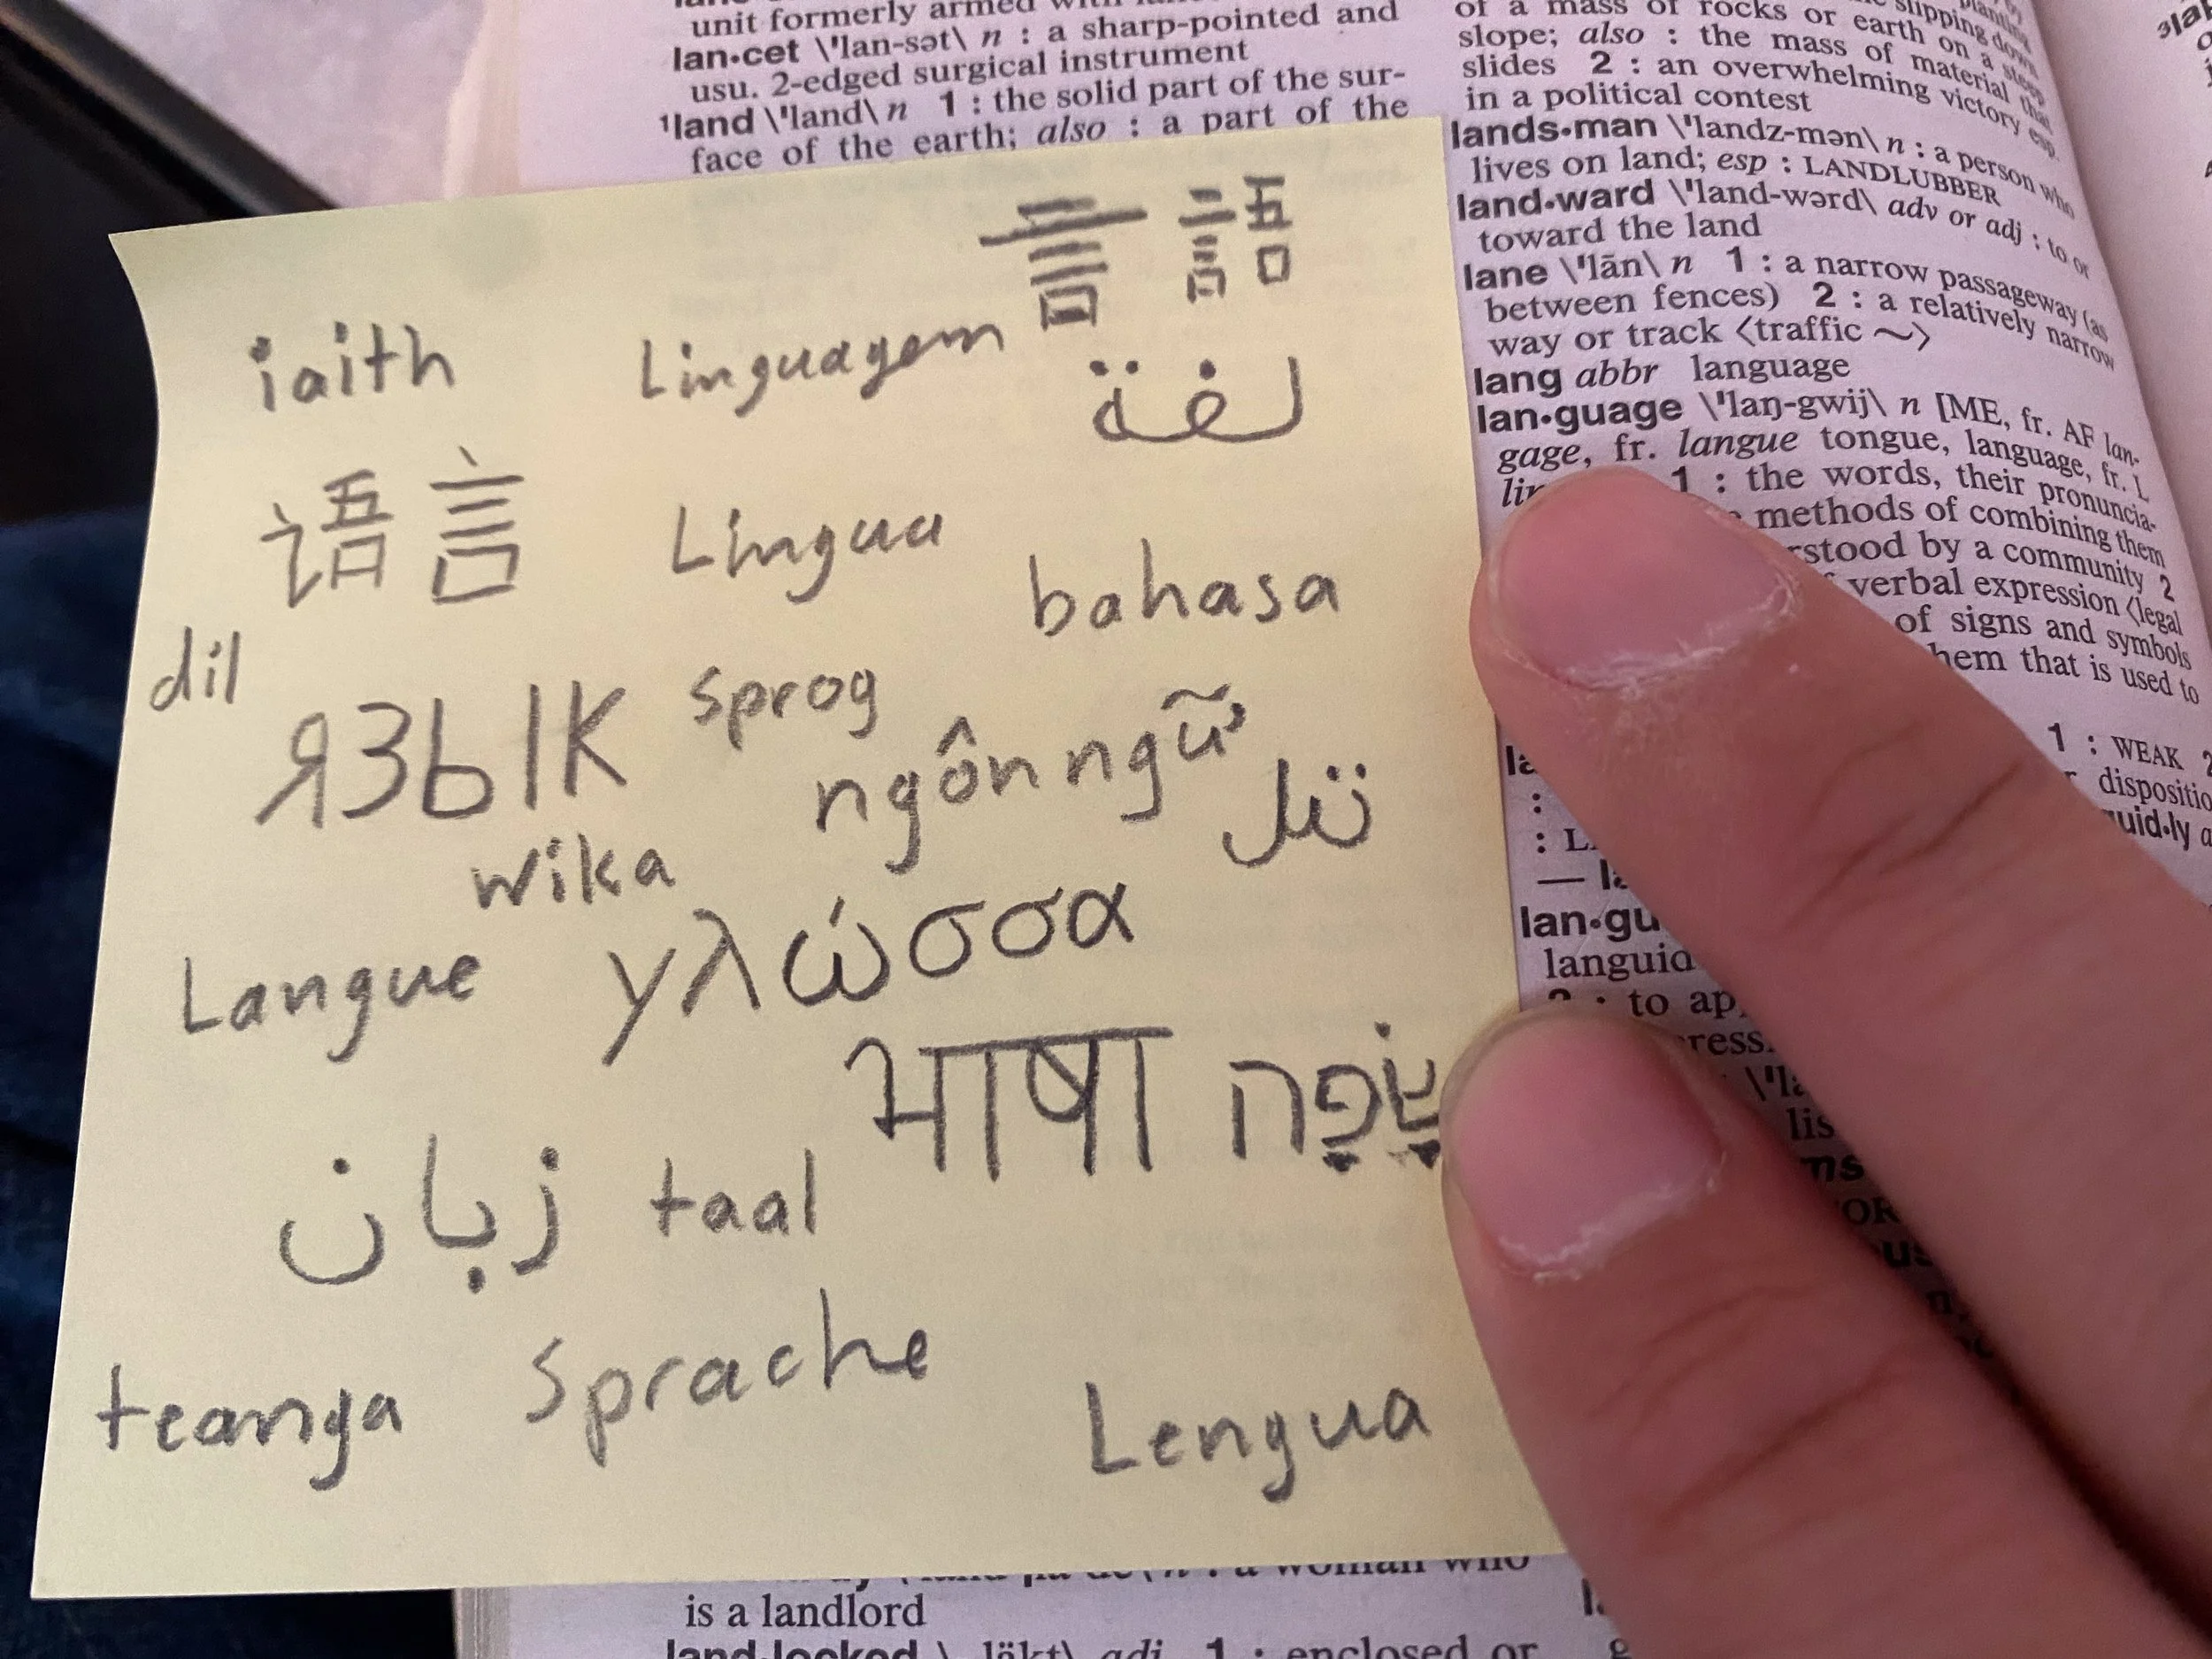 unit formerly armed
lan•cet \ˈlan-sət\ n : a sharp-pointed and
usu. 2-edged surgical instrument
¹land \ˈland\ n 1 : the solid part of the sur-
face of the earth; also : a part of the
of a mass of rocks or earth on a steep
slope; also : the mass of material that
slides 2 : an overwhelming victory esp.
in a political contest
lands•man \ˈlandz-mən\ n : a person who
lives on land; esp : LANDLUBBER
land•ward \ˈland-wərd\ adv or adj : to or
toward the land
lane \ˈlān\ n 1 : a narrow passageway (as
between fences) 2 : a relatively narrow
way or track ⟨traffic ~⟩
lang abbr language
lan•guage \ˈlaŋ-gwij\ n [ME, fr. AF lan-
gage, fr. langue tongue, language, fr. L
1 : the words, their pronuncia-
methods of combining them
by a community 2
verbal expression ⟨legal
of signs and symbols
that is used to
1 : WEAK 2
languid
: to
言語
iaith Linguagem
لغة
语言 Lingua
bahasa
dil
язык sprog
ngôn ngữ
تىل
wika
Langue γλώσσα
भाषा שָׂפָה
زبان taal
teanga Sprache
Lengua
is a landlord
land•locked \-ˌläkt\ adj 1 : enclosed or